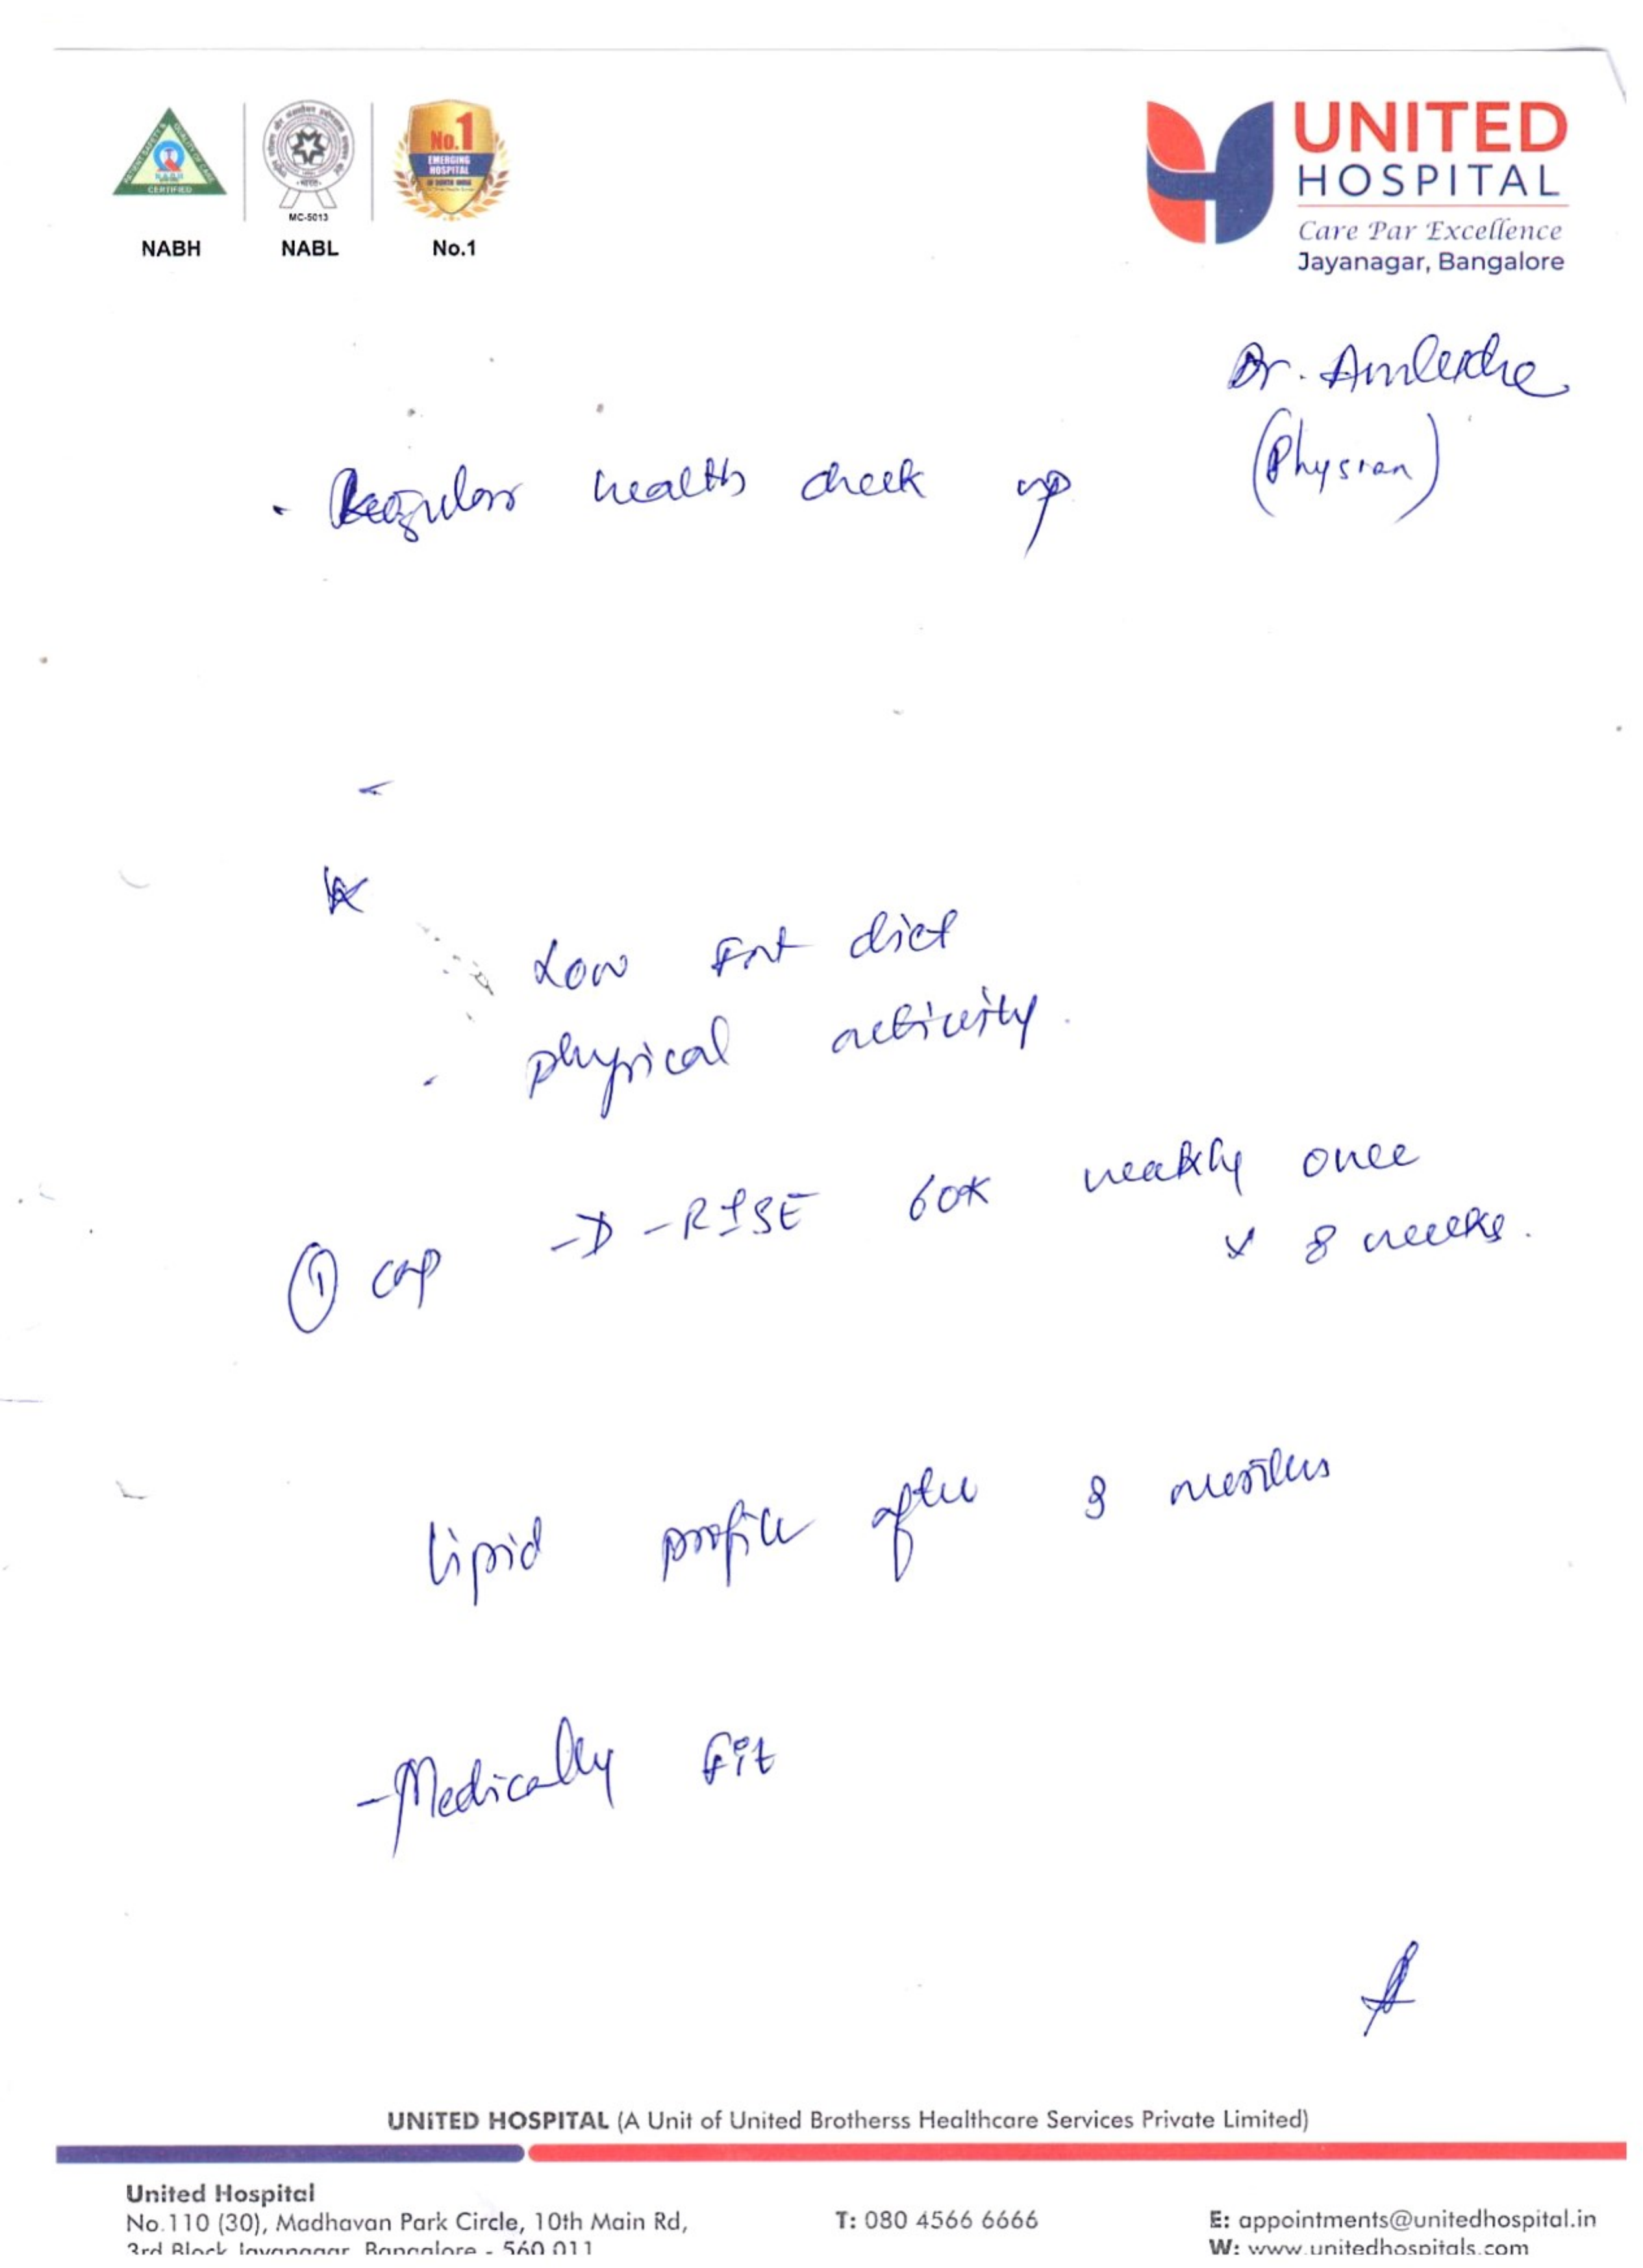 NABH
MC-5013
NABL
No.1
EMERGING
HOSPITAL
No.1
CERTIFIED
UNITED
HOSPITAL
Care Par Excellence
Jayanagar, Bangalore
Dr.
(Physian)
- Regular health check up
Low Fat diet
- physical activity.
① cap -D-RISE 60K weekly once
x 8 weeks.
lipid profile after 3 months
- Medically Fit
UNITED HOSPITAL (A Unit of United Brotherss Healthcare Services Private Limited)
United Hospital
No.110 (30), Madhavan Park Circle, 10th Main Rd,
3rd Block Jayanagar, Bangalore - 560 011
T: 080 4566 6666
E: appointments@unitedhospital.in
W: www.unitedhospitals.com